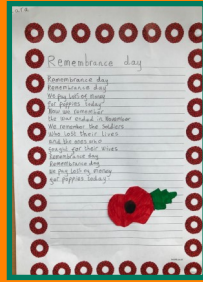 Remembrance day
Remembrance day
Remembrance day
We pay lots of money
for poppies today
Now we remember
the war ended in November
We remember the soldiers
who lost their lives
And the ones who
fought for their lives
Remembrance day
Remembrance day
we pay lots of money
for poppies today